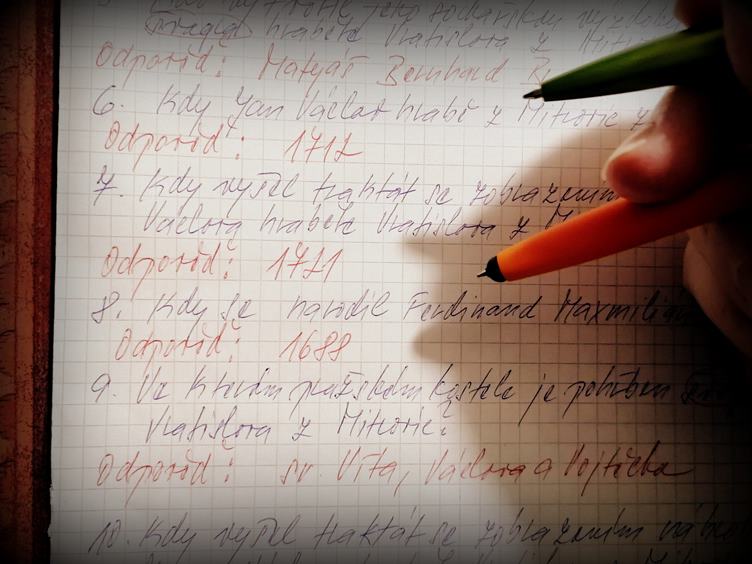 hraběte Vratislava z
Odpověď: Matyáš Bernhard
6. Kdy Jan Václav hrabě z Mitrovic z
Odpověď: 1712
7. Kdy vyšel traktát se zobrazením
Václava hraběte Vratislava z
Odpověď: 1721
8. Kdy se narodil Ferdinand Maxmilián
Odpověď: 1688
9. Ve kterém pražském kostele je pohřben
Vratislava z Mitrovic?
Odpověď: sv. Víta, Václava a Vojtěcha
10. Kdy vyšel traktát se zobrazením